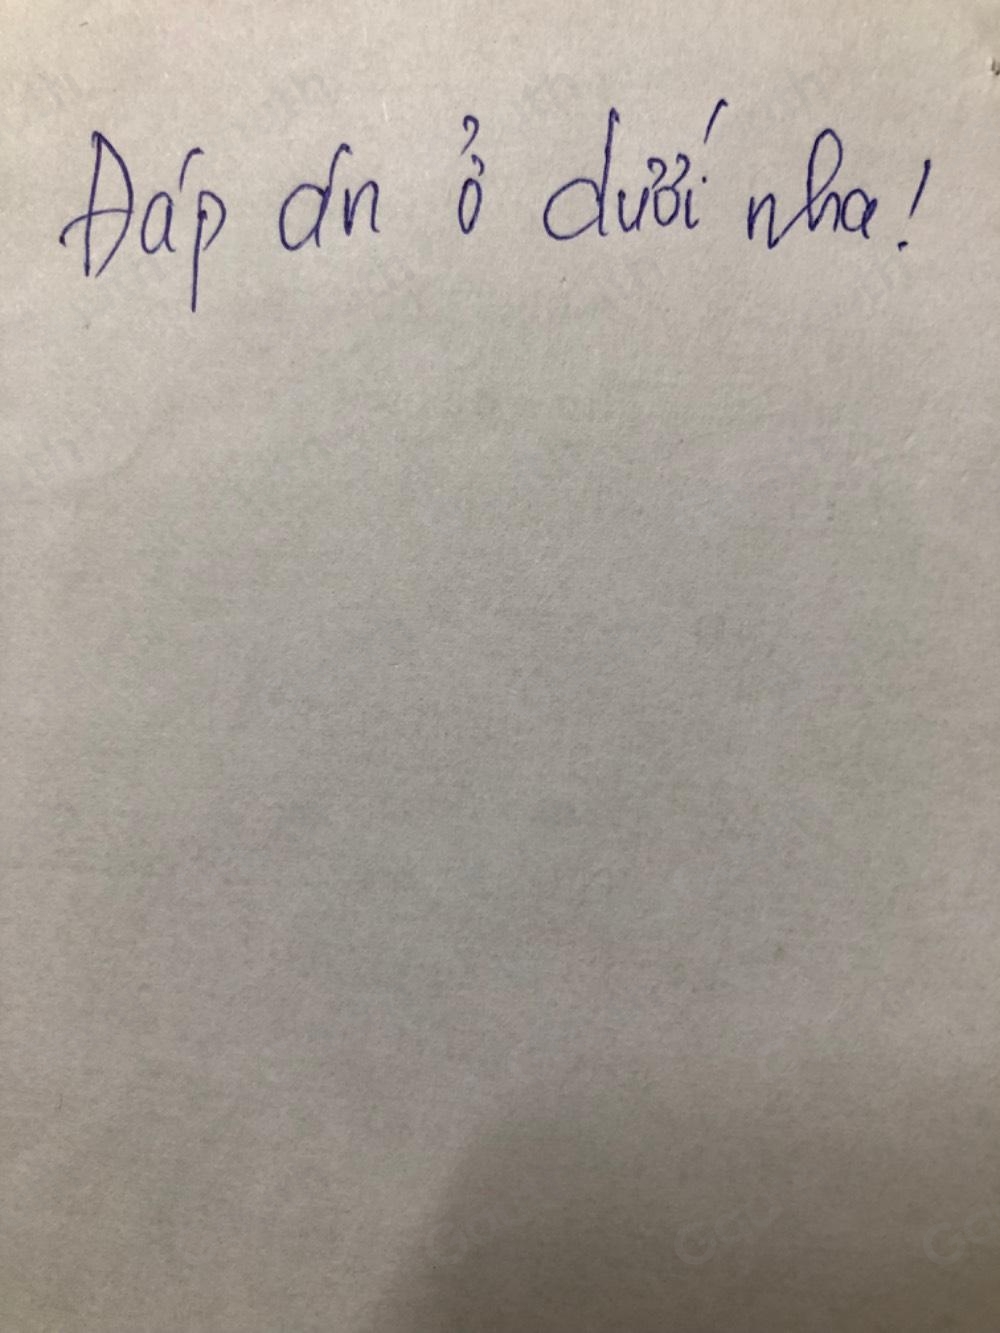 Đáp án ở dưới nha!